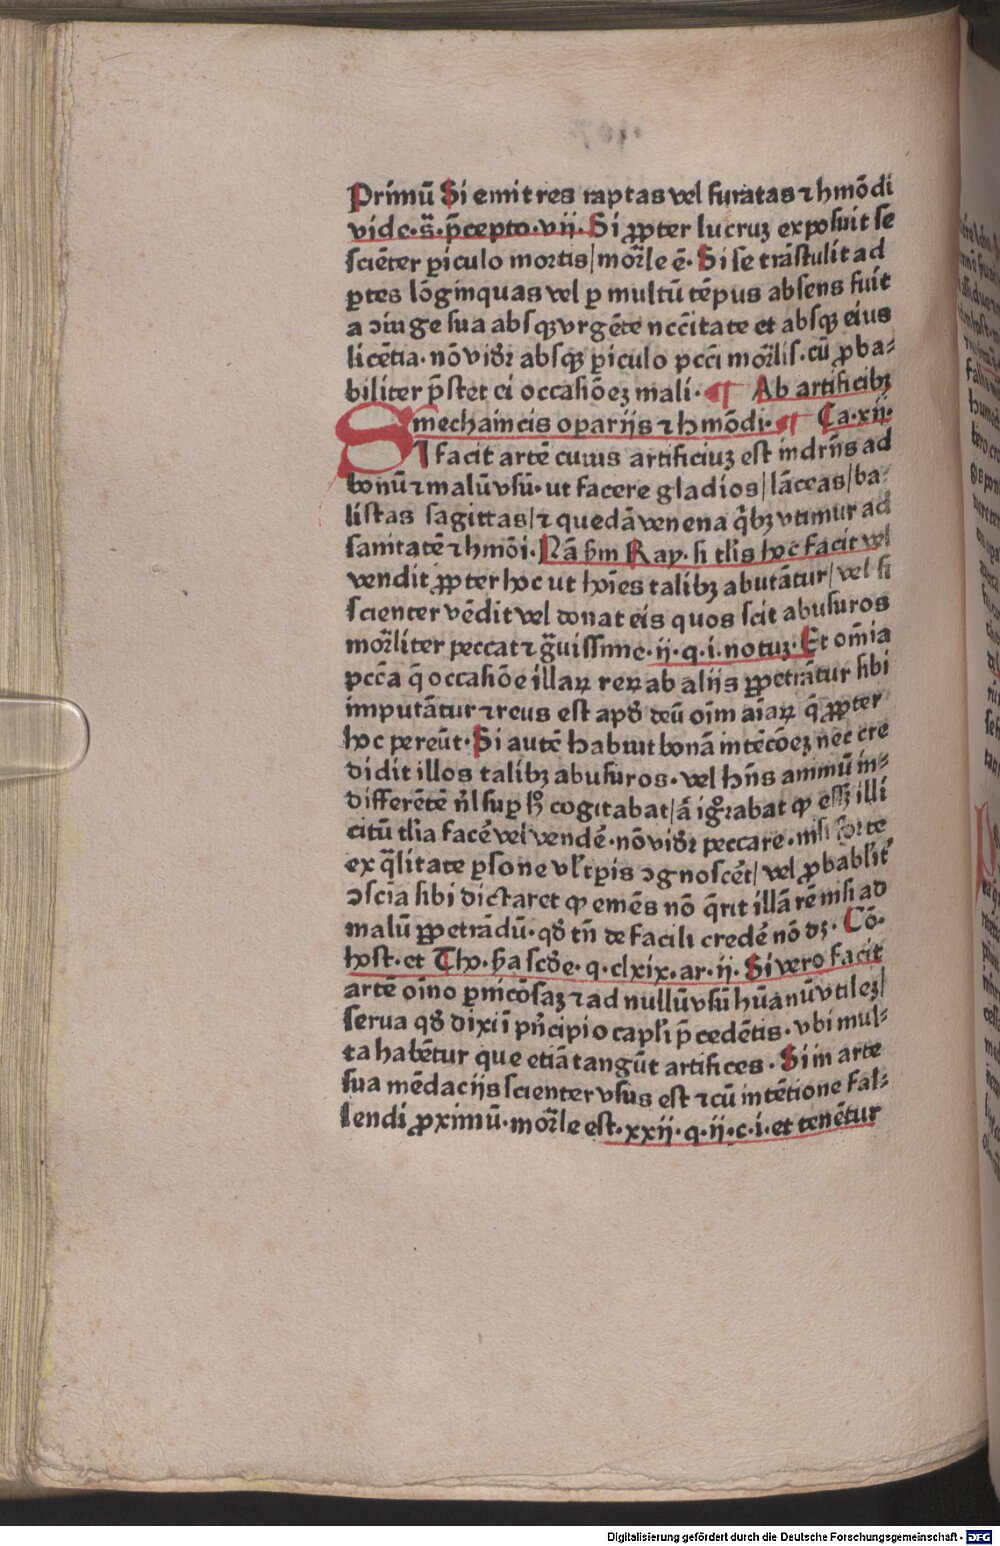 Primū Si emit res raptas vel furatas ⁊ hmōdi
vide·s̄·p̄cepto·vij· Si ꝓpter lucruꝫ exposuit se
sciēter ꝑiculo mortis/mor̄le ē· Si se trāstulit ad
ꝑtes lōginquas vel ꝑ multū tēpus absens fuit
a ↄiuge sua absqꝫ vrgēte nccītate et absqꝫ eius
licētia· nō vid̄r absqꝫ ꝑiculo pccī mor̄lis· cū ꝓba⸗
biliter p̄stet ei occasiōeꝫ mali· ¶ Ab artificibꝫ
mechanicis oparijs ⁊ hmōdi· ¶ Ca·xij·
SI facit artē cuius artificiuꝫ est indr̄ns ad
bonū ⁊ malū vsū· ut facere gladios/lāceas/ba⸗
listas sagittas/⁊ quedā venena q̄bꝫ vtimur ad
sanitatē ⁊ hmōi· Nā ẜm Ray· si tl̄is hoc facit vel
vendit ꝓpter hoc ut hōies talibꝫ abutātur/vel si
scienter vēdit vel donat eis quos scit abusuros
mor̄liter peccat ⁊ g̃uissime· ij·q·i·notuꝫ· Et om̄ia
pccā q̄ occasiōe illaꝝ reꝝ ab alijs ꝑpetrātur sibi
imputātur ⁊ reus est apd̄ deū oīm aīaꝝ q̄ ꝓpter
hoc pereūt· Si autē habuit bonā intēcōeꝫ nec cre
didit illos talibꝫ abusuros· vel hn̄s animū in⸗
differētē nl̄ suꝑ hͦ cogitabat/ā igr̄abat ꝙ eēꝫ illi
citū tl̄ia facē vel vendē· nō vid̄r peccare· nisi forte
ex q̄litate ꝑsone vl̄ tꝑis ↄgnoscēt/ vel ꝓbabl̄it̄
ↄscīa sibi dictaret ꝙ emēs nō q̄rit illā rē nisi ad
malū ꝑpetrādū· qd̄ tn̄ de facili credē nō dꝫ· Cō·
host· et Tho· ẜa scd̄e·q·clxix·ar·ij· Si vero facit
artē oīno ꝑnicōsaꝫ ⁊ ad nullū vsū hūanū vtileꝫ/
serua qd̄ dixi ī pn̄cipio capl̄i p̄cedētis· vbi mul⸗
ta habētur que etiā tangūt artifices· Si in arte
sua mēdacijs scienter vsus est ⁊ cū intētione fal⸗
lendi ꝓximū· mor̄le est· xxij·q·ij·c·i· et tenētur
Digitalisierung gefördert durch die Deutsche Forschungsgemeinschaft - DFG